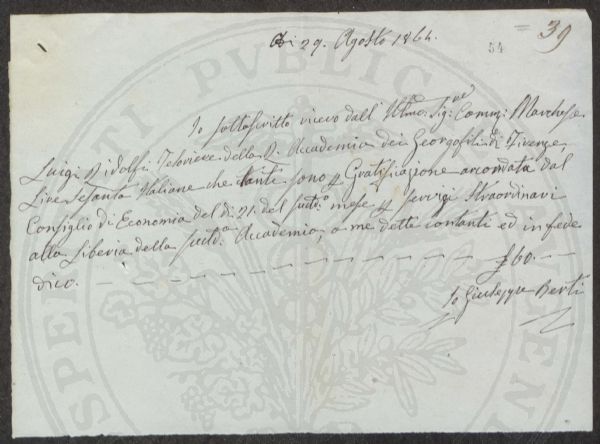 = 39
54
Di 29. Agosto 1864.
Io sottoscritto ricevo dall' Illmo. Sig:re Comm: Marchese
Luigi Ridolfi Tesoriere della R. Accademia dei Georgofili di Firenze
Lire Sesanta Italiane che tanti sono p Gratificazione accordata dal
Consiglio di Economia del di 21. del sud:o mese p servigi Straordinari
alla Libreria della sud:a Accademia, a me detto contanti ed in fede
dico. — — — — — — — — — — £ 60. — —
Io Giuseppe Berti
SPERITATI PUBLIC